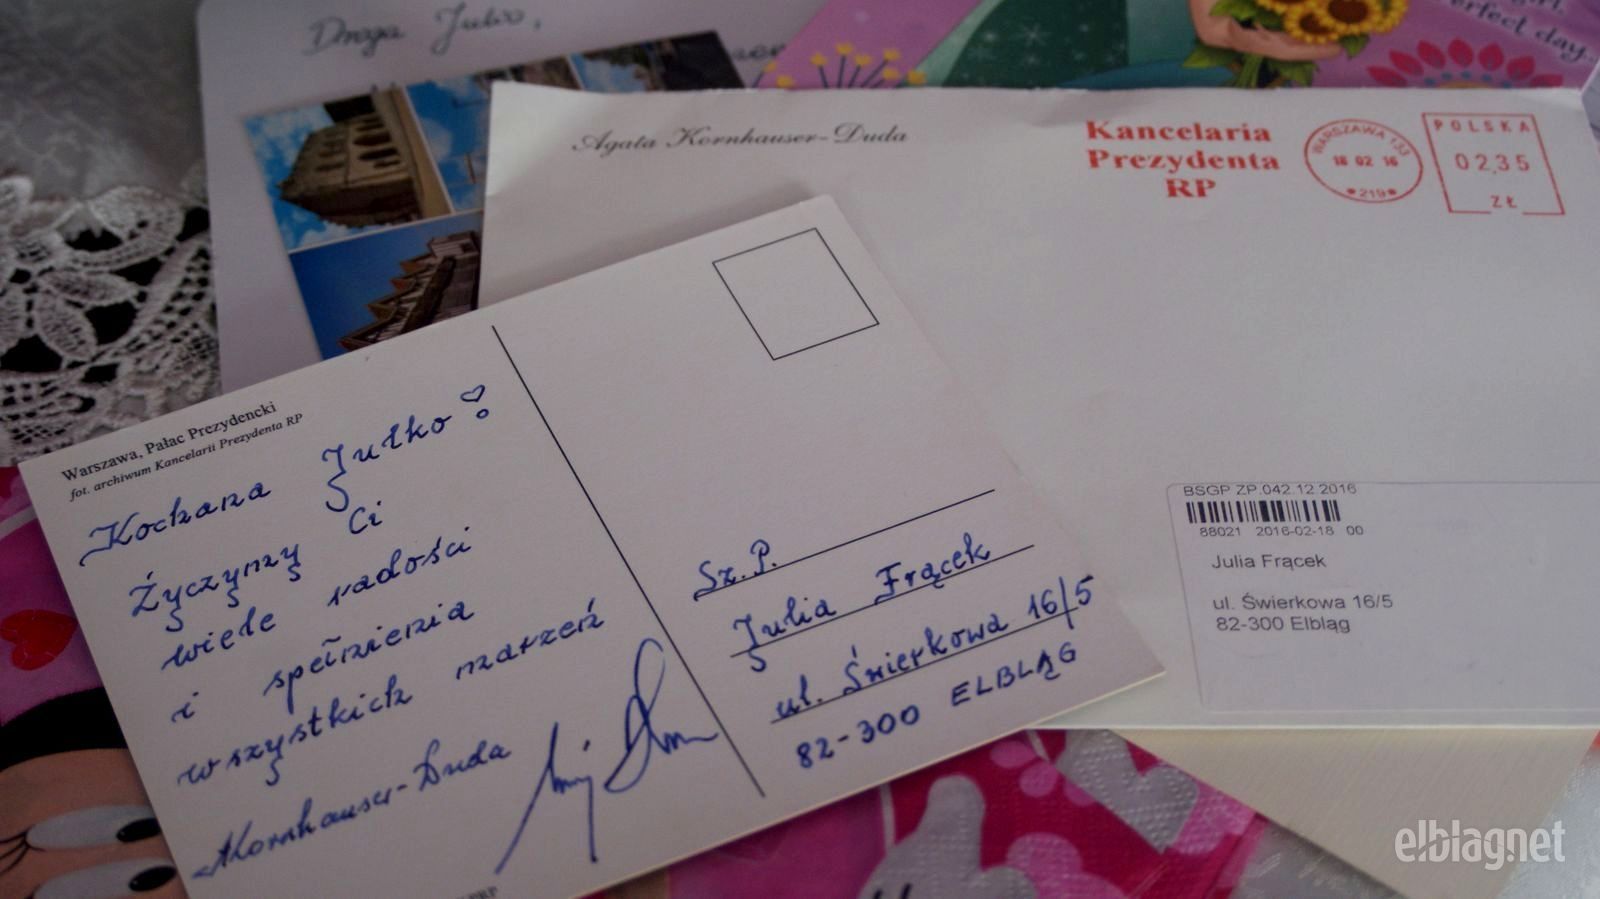 Droga Julio,
girl.
perfect day.
Agata Kornhauser-Duda
Kancelaria
Prezydenta
RP
WARSZAWA 133
18 02 16
*219*
POLSKA
02,35
ZŁ
Warszawa, Pałac Prezydencki
fot. archiwum Kancelarii Prezydenta RP
Kochana Julko!
Życzymy Ci
wiele radości
i spełnienia
wszystkich marzeń
AKornhauser-Duda
Sz. P.
Julia Frącek
ul. Świerkowa 16/5
82-300 ELBLĄG
BSGP ZP.042.12.2016
88021 2016-02-18 00
Julia Frącek
ul. Świerkowa 16/5
82-300 Elbląg
elblag.net